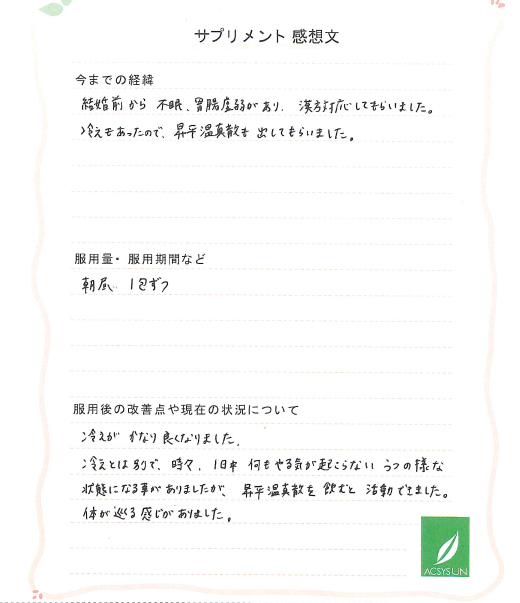 サプリメント 感想文
今までの経緯
結婚前から 不眠、胃腸虚弱があり、漢方対応してもらいました。
冷えもあったので、昇平温真散を出してもらいました。
服用量・服用期間など
朝昼 1包ずつ
服用後の改善点や現在の状況について
冷えが かなり良くなりました。
冷えとは別で、時々、1日中 何もやる気が起こらない うつの様な
状態になる事がありましたが、昇平温真散を飲むと 活動できました。
体が巡る感じがありました。
ACSYSUN